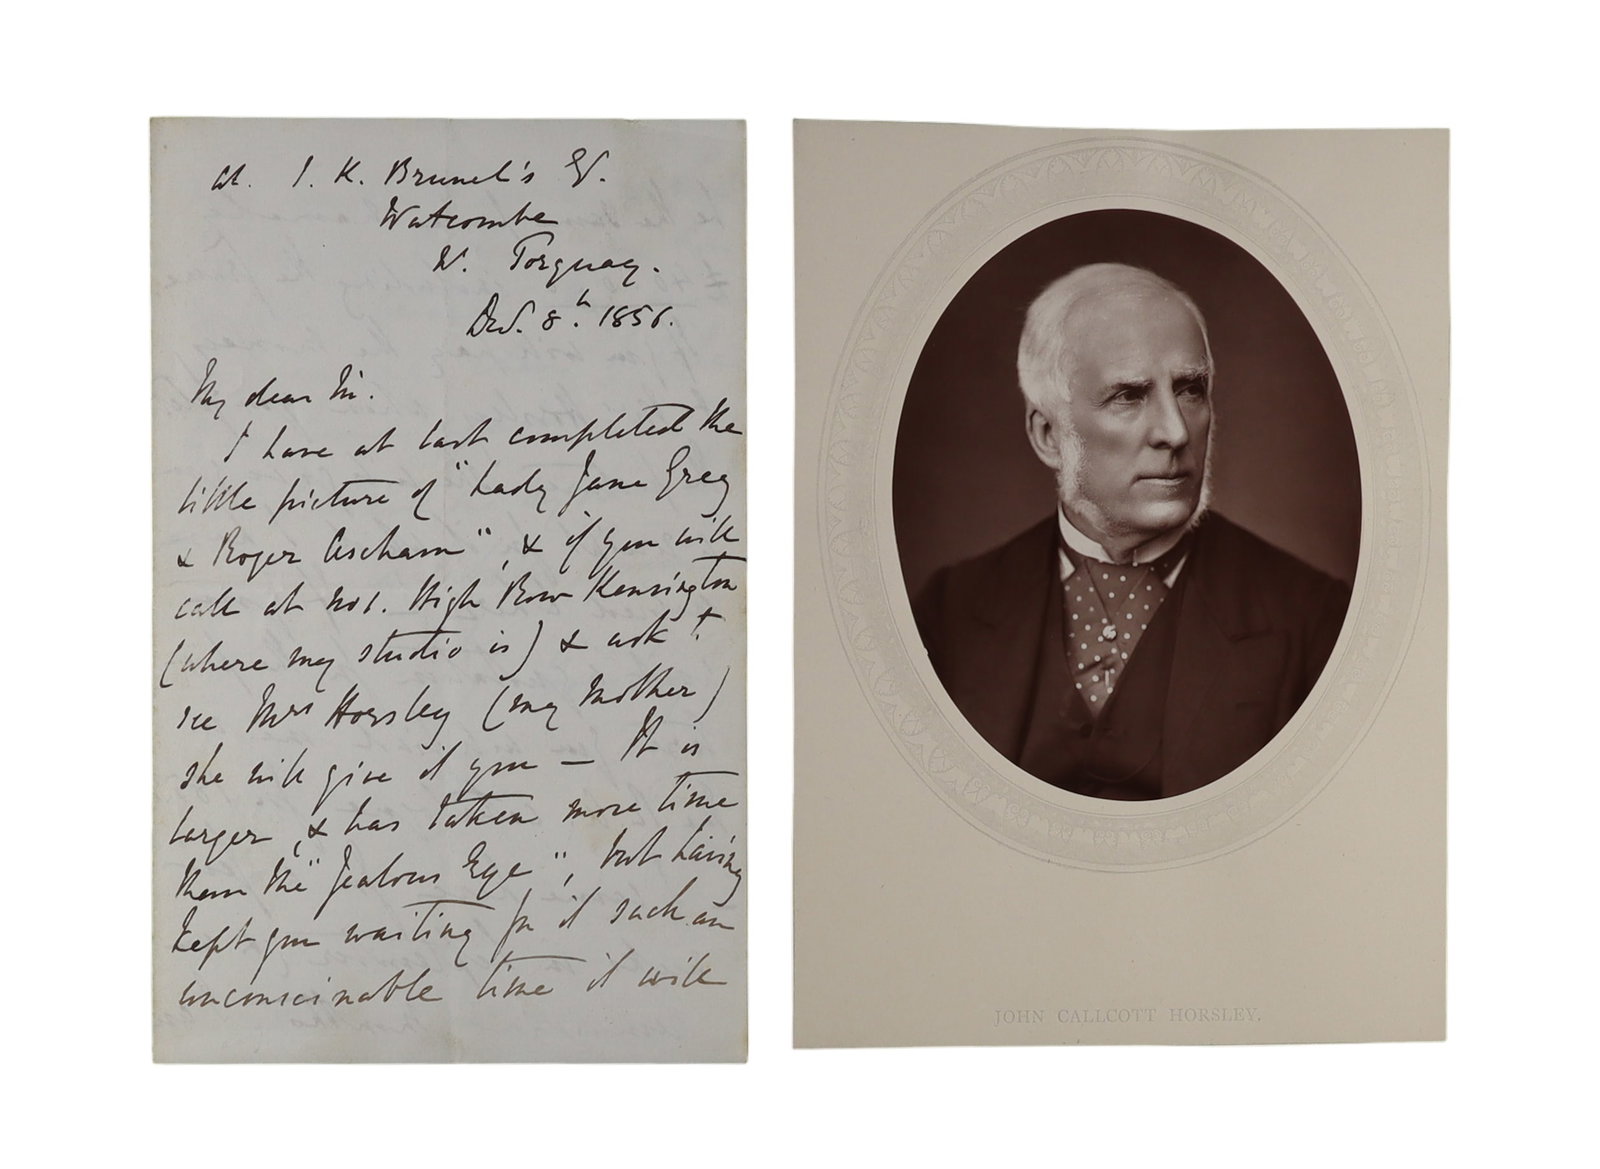 at. I. K. Brunel's Esq.
Watcombe
Nr. Torquay.
Decr. 8th. 1856.
My dear Sir.
I have at last completed the
little picture of "Lady Jane Grey
& Roger Ascham", & if you will
call at No 1. High Row Kensington
(where my studio is) & ask to
see Mrs Horsley (my Mother)
she will give it you — It is
larger, & has taken more time
than the "Jealous Eye", but having
kept you waiting for it such an
unconscinable time it will
JOHN CALLCOTT HORSLEY.